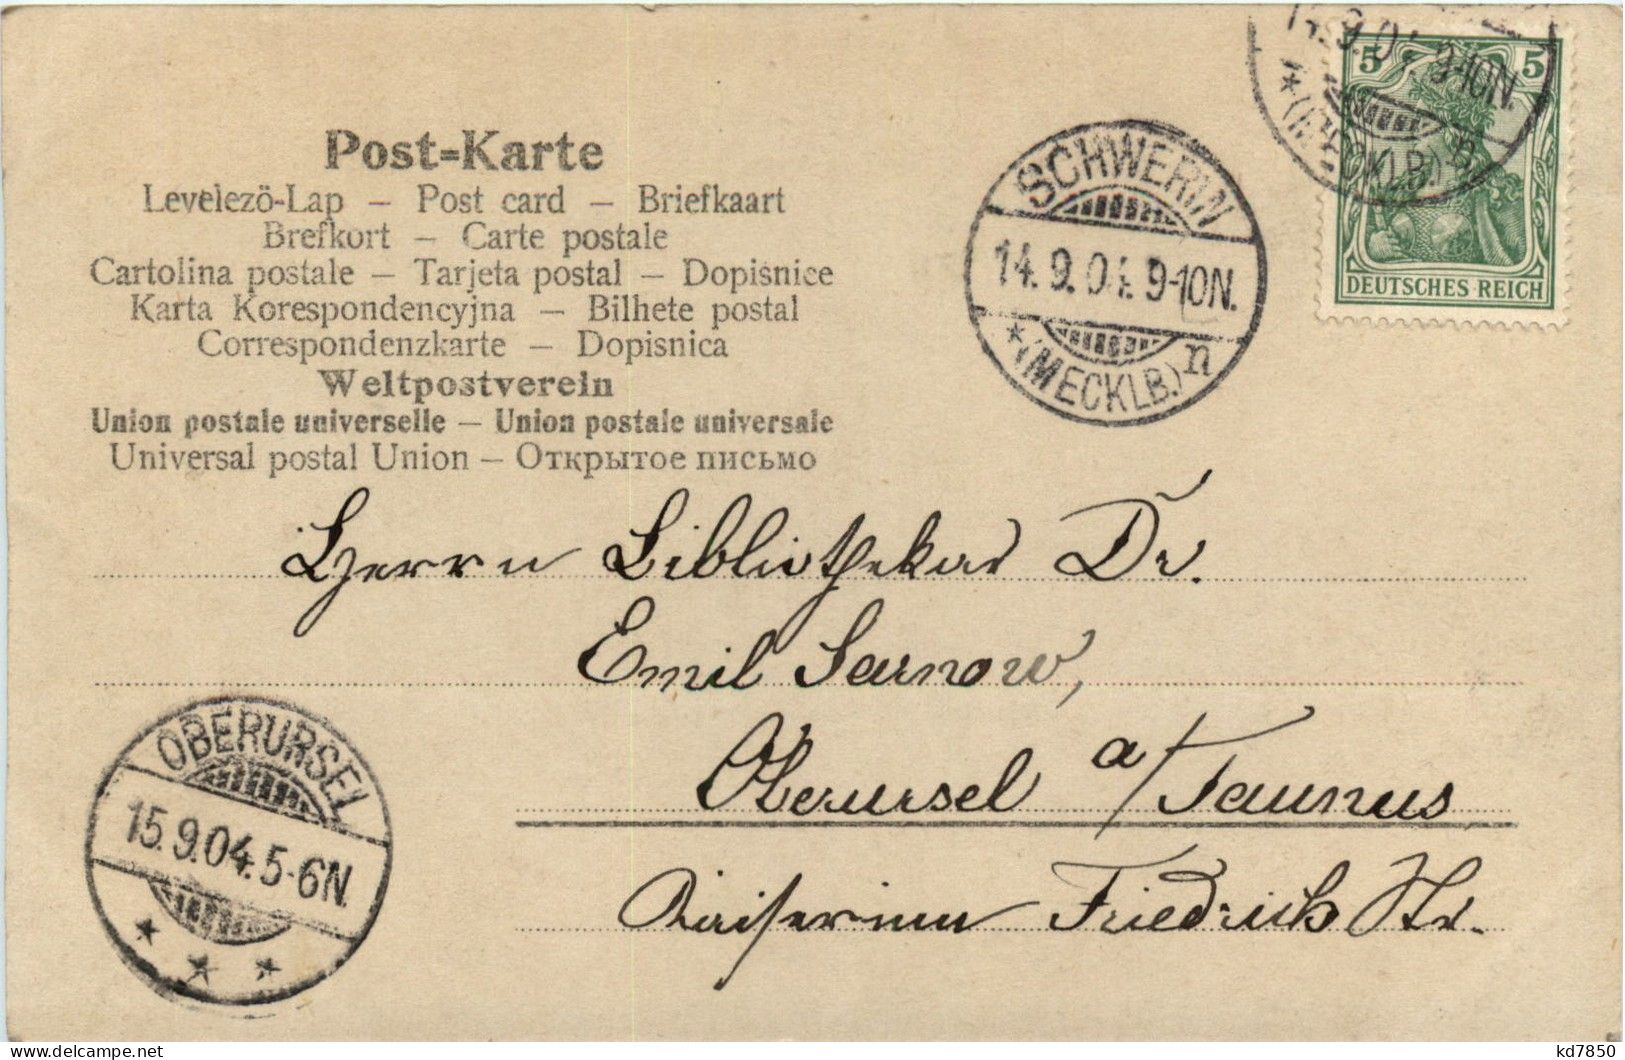 Post-Karte
Levelezö-Lap – Post card – Briefkaart
Brefkort – Carte postale
Cartolina postale – Tarjeta postal – Dopisnice
Karta Korespondencyjna – Bilhete postal
Correspondenzkarte – Dopisnica
Weltpostverein
Union postale universelle – Union postale universale
Universal postal Union – Открытое письмо
SCHWERIN
14.9.04. 9-10N.
*(MECKLB.) n
14.9.04. 9-10N.
*(MECKLB.) n
5 5
DEUTSCHES REICH
Herrn Bibliothekar Dr.
Emil Sarnow,
Oberursel a/Taunus
Kaiserin Friedrich Str.
OBERURSEL
15.9.04. 5-6N.
* * *
kd7850